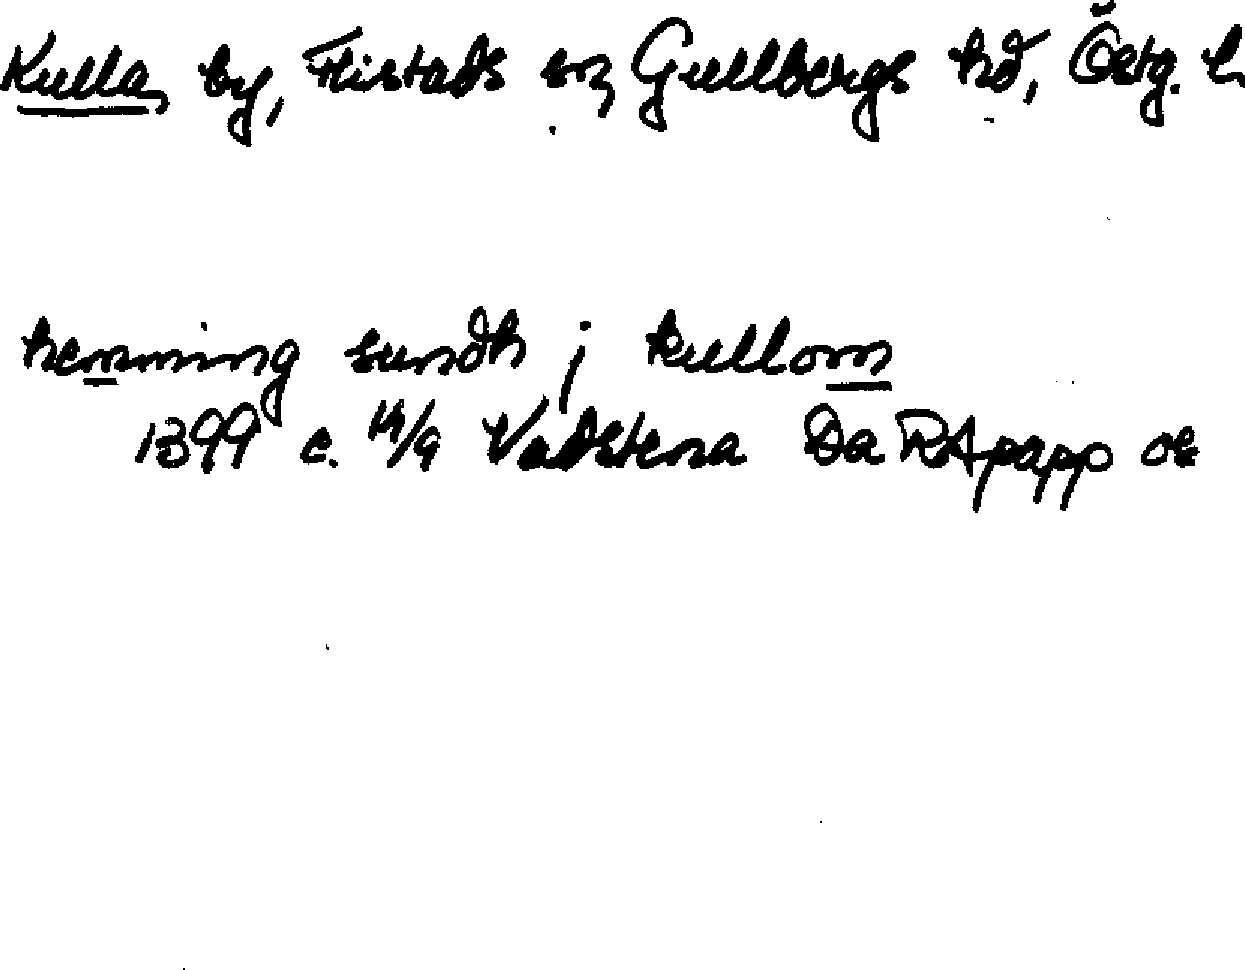 Kulla by, Flistads sn, Gullbergs hd, Östg. l.
hemming sundh j kullom
1399 c. 14/9 Vadstena Da RApapp or